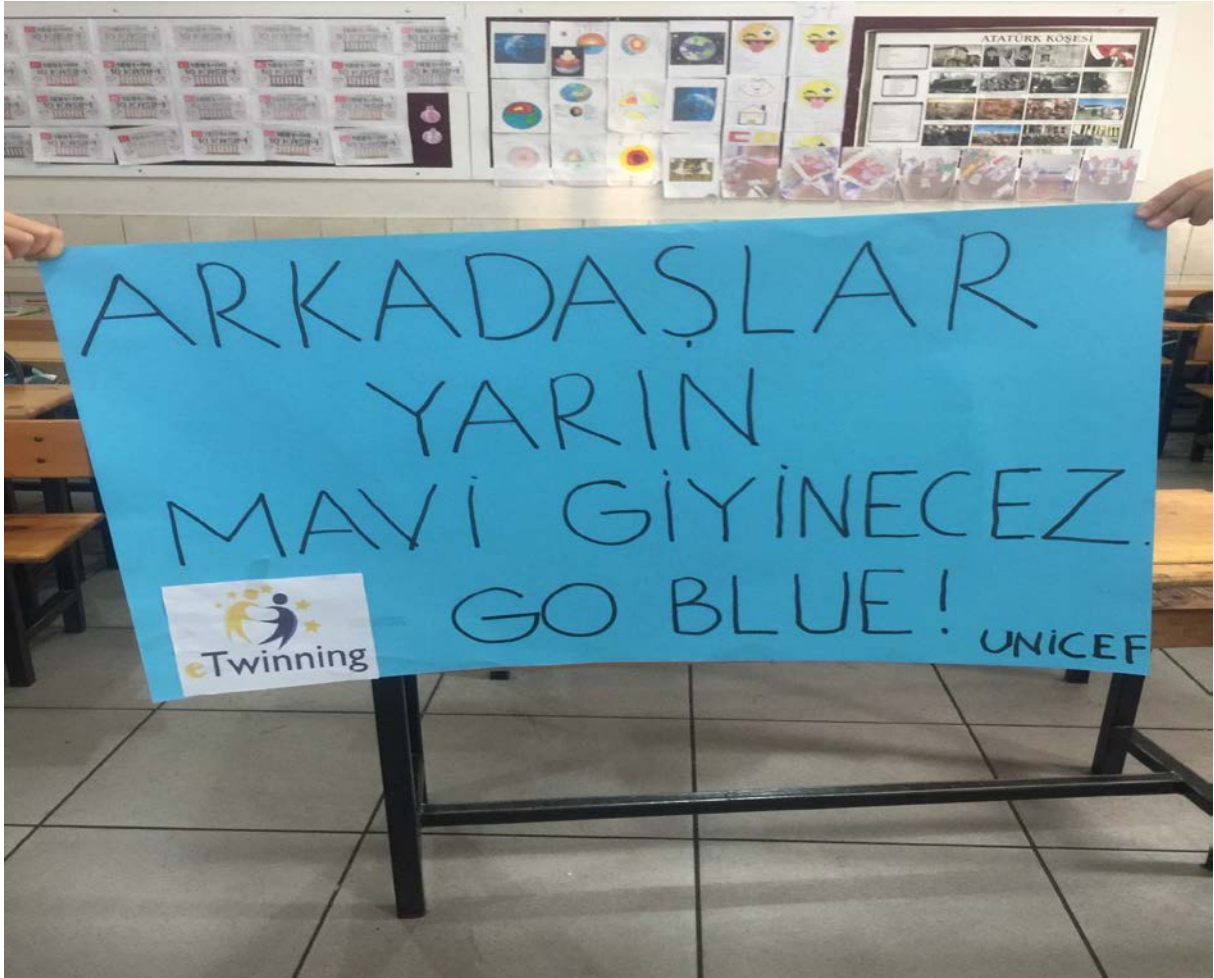 ATATÜRK KÖŞESİ
ARKADAŞLAR
YARIN
MAVİ GİYİNECEZ.
GO BLUE!
UNİCEF
eTwinning